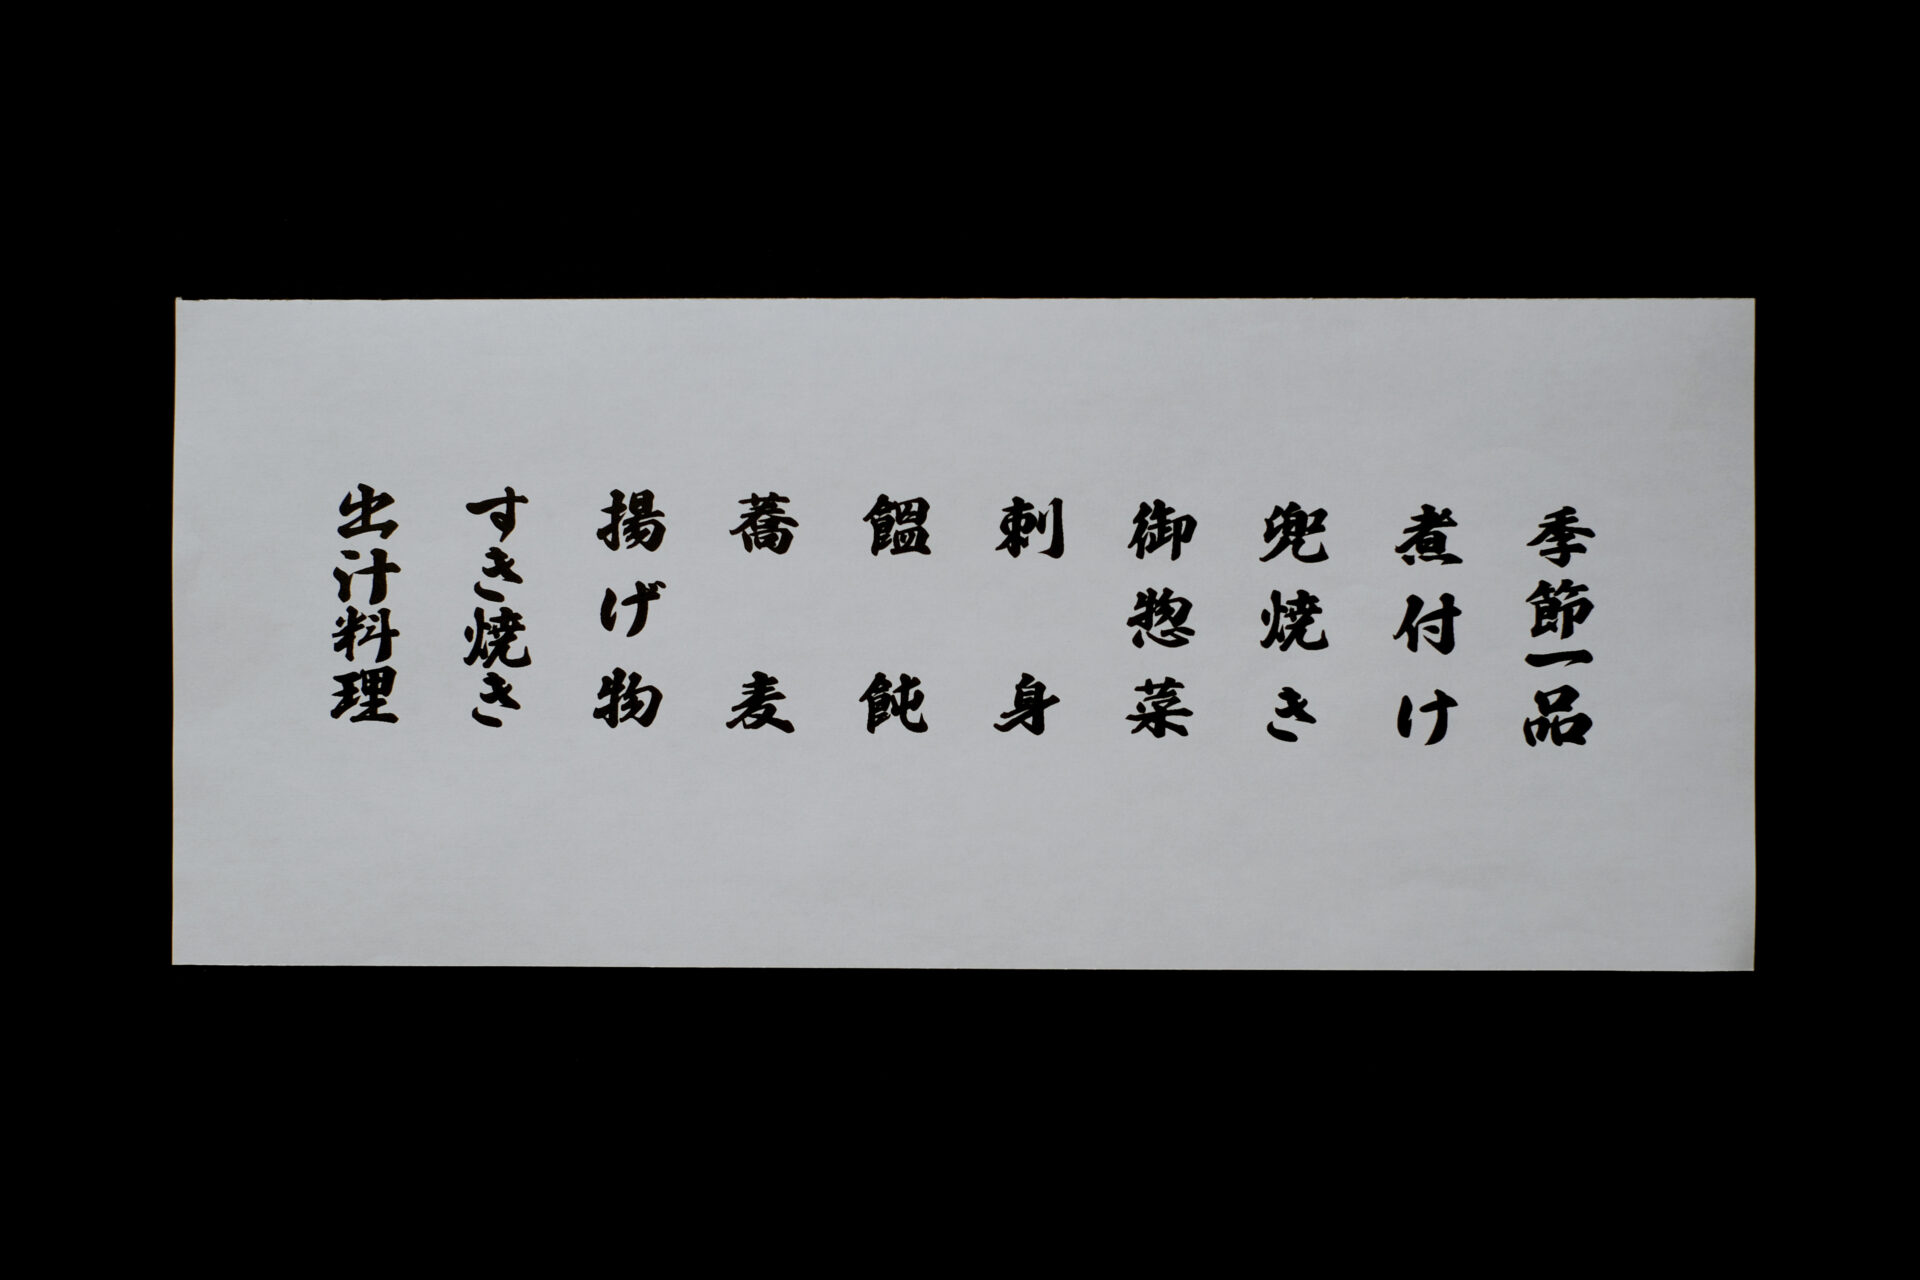 季節一品
煮付け
兜焼き
御惣菜
刺身
饂飩
蕎麦
揚げ物
すき焼き
出汁料理